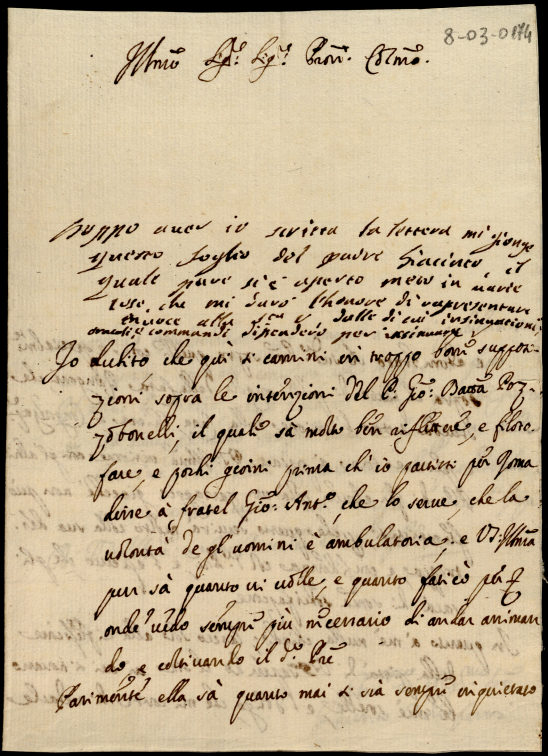 8-03-0174
Illmo Sigr. Sigr. Pron. Colmo.
Doppo aver io scritta la lettera mi gionge
questo foglio del padre Giacinto, il
quale pure si è aperto meco in varie
cose, che mi darò l'honore di rapresentare
in voce alla dalle di cui insinuazioni,
e commandi dipenderò per
Io dubito che quì si camini in troppo bone supposi-
zioni sopra le intenzioni del P. Gio: Batta Poz-
zobonelli, il quale sà molto ben riflettere, e filoso-
fare, e pochi giorni prima ch'io partissi per Roma
disse à fratel Gio: Anto, che lo serve, che la
volontà de gl'uomini è ambulatoria, e VS: Illma
pur sà quanto vi volle, e quanto faticò per
onde vedo sempre più necessario di andar animan
do, e coltivando il do. Pre
Parimente ella sà quanto mai si sia sempre inquietato